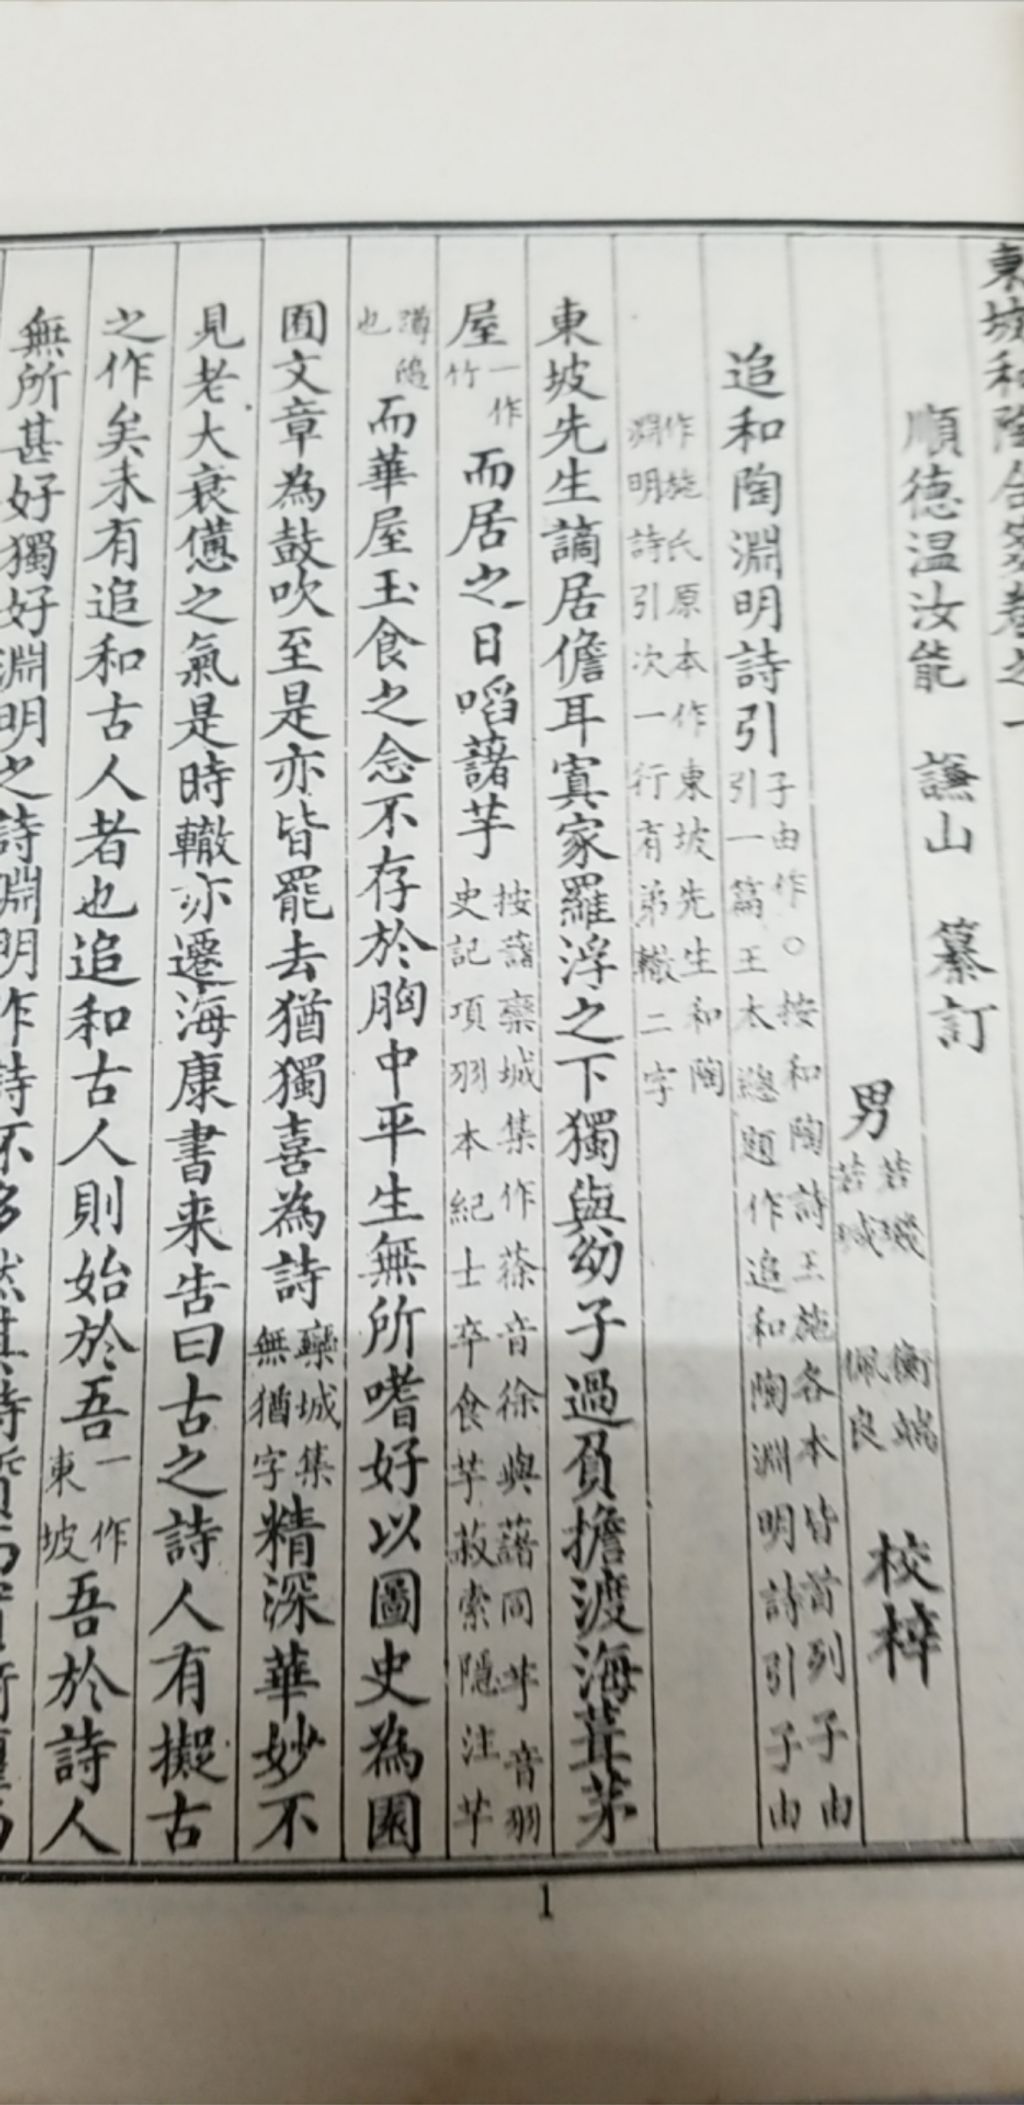 東坡和陶合箋卷之一
順德溫汝能 謙山 纂訂
男 若璣 衡端 若瑊 佩良 校梓
追和陶淵明詩引 子由作○按和陶詩王施各本皆首列子由
引一篇王太總題作追和陶淵明詩引子由
作施氏原本作東坡先生和陶
淵明詩引次一行有弟轍二字
東坡先生謫居儋耳寘家羅浮之下獨與幼子過負擔渡海葺茅
屋 一作竹 而居之日啗藷芋 按藷欒城集作蒣音徐與藷同芋音羽
史記項羽本紀士卒食芋菽索隱注芋
蹲鴟也 而華屋玉食之念不存於胸中平生無所嗜好以圖史為園
囿文章為鼓吹至是亦皆罷去猶獨喜為詩 欒城集無猶字 精深華妙不
見老大衰憊之氣是時轍亦遷海康書来告曰古之詩人有擬古
之作矣未有追和古人者也追和古人則始於吾 一作東坡 吾於詩人
無所甚好獨好淵明之詩淵明作詩不多然其詩質而實綺癯而